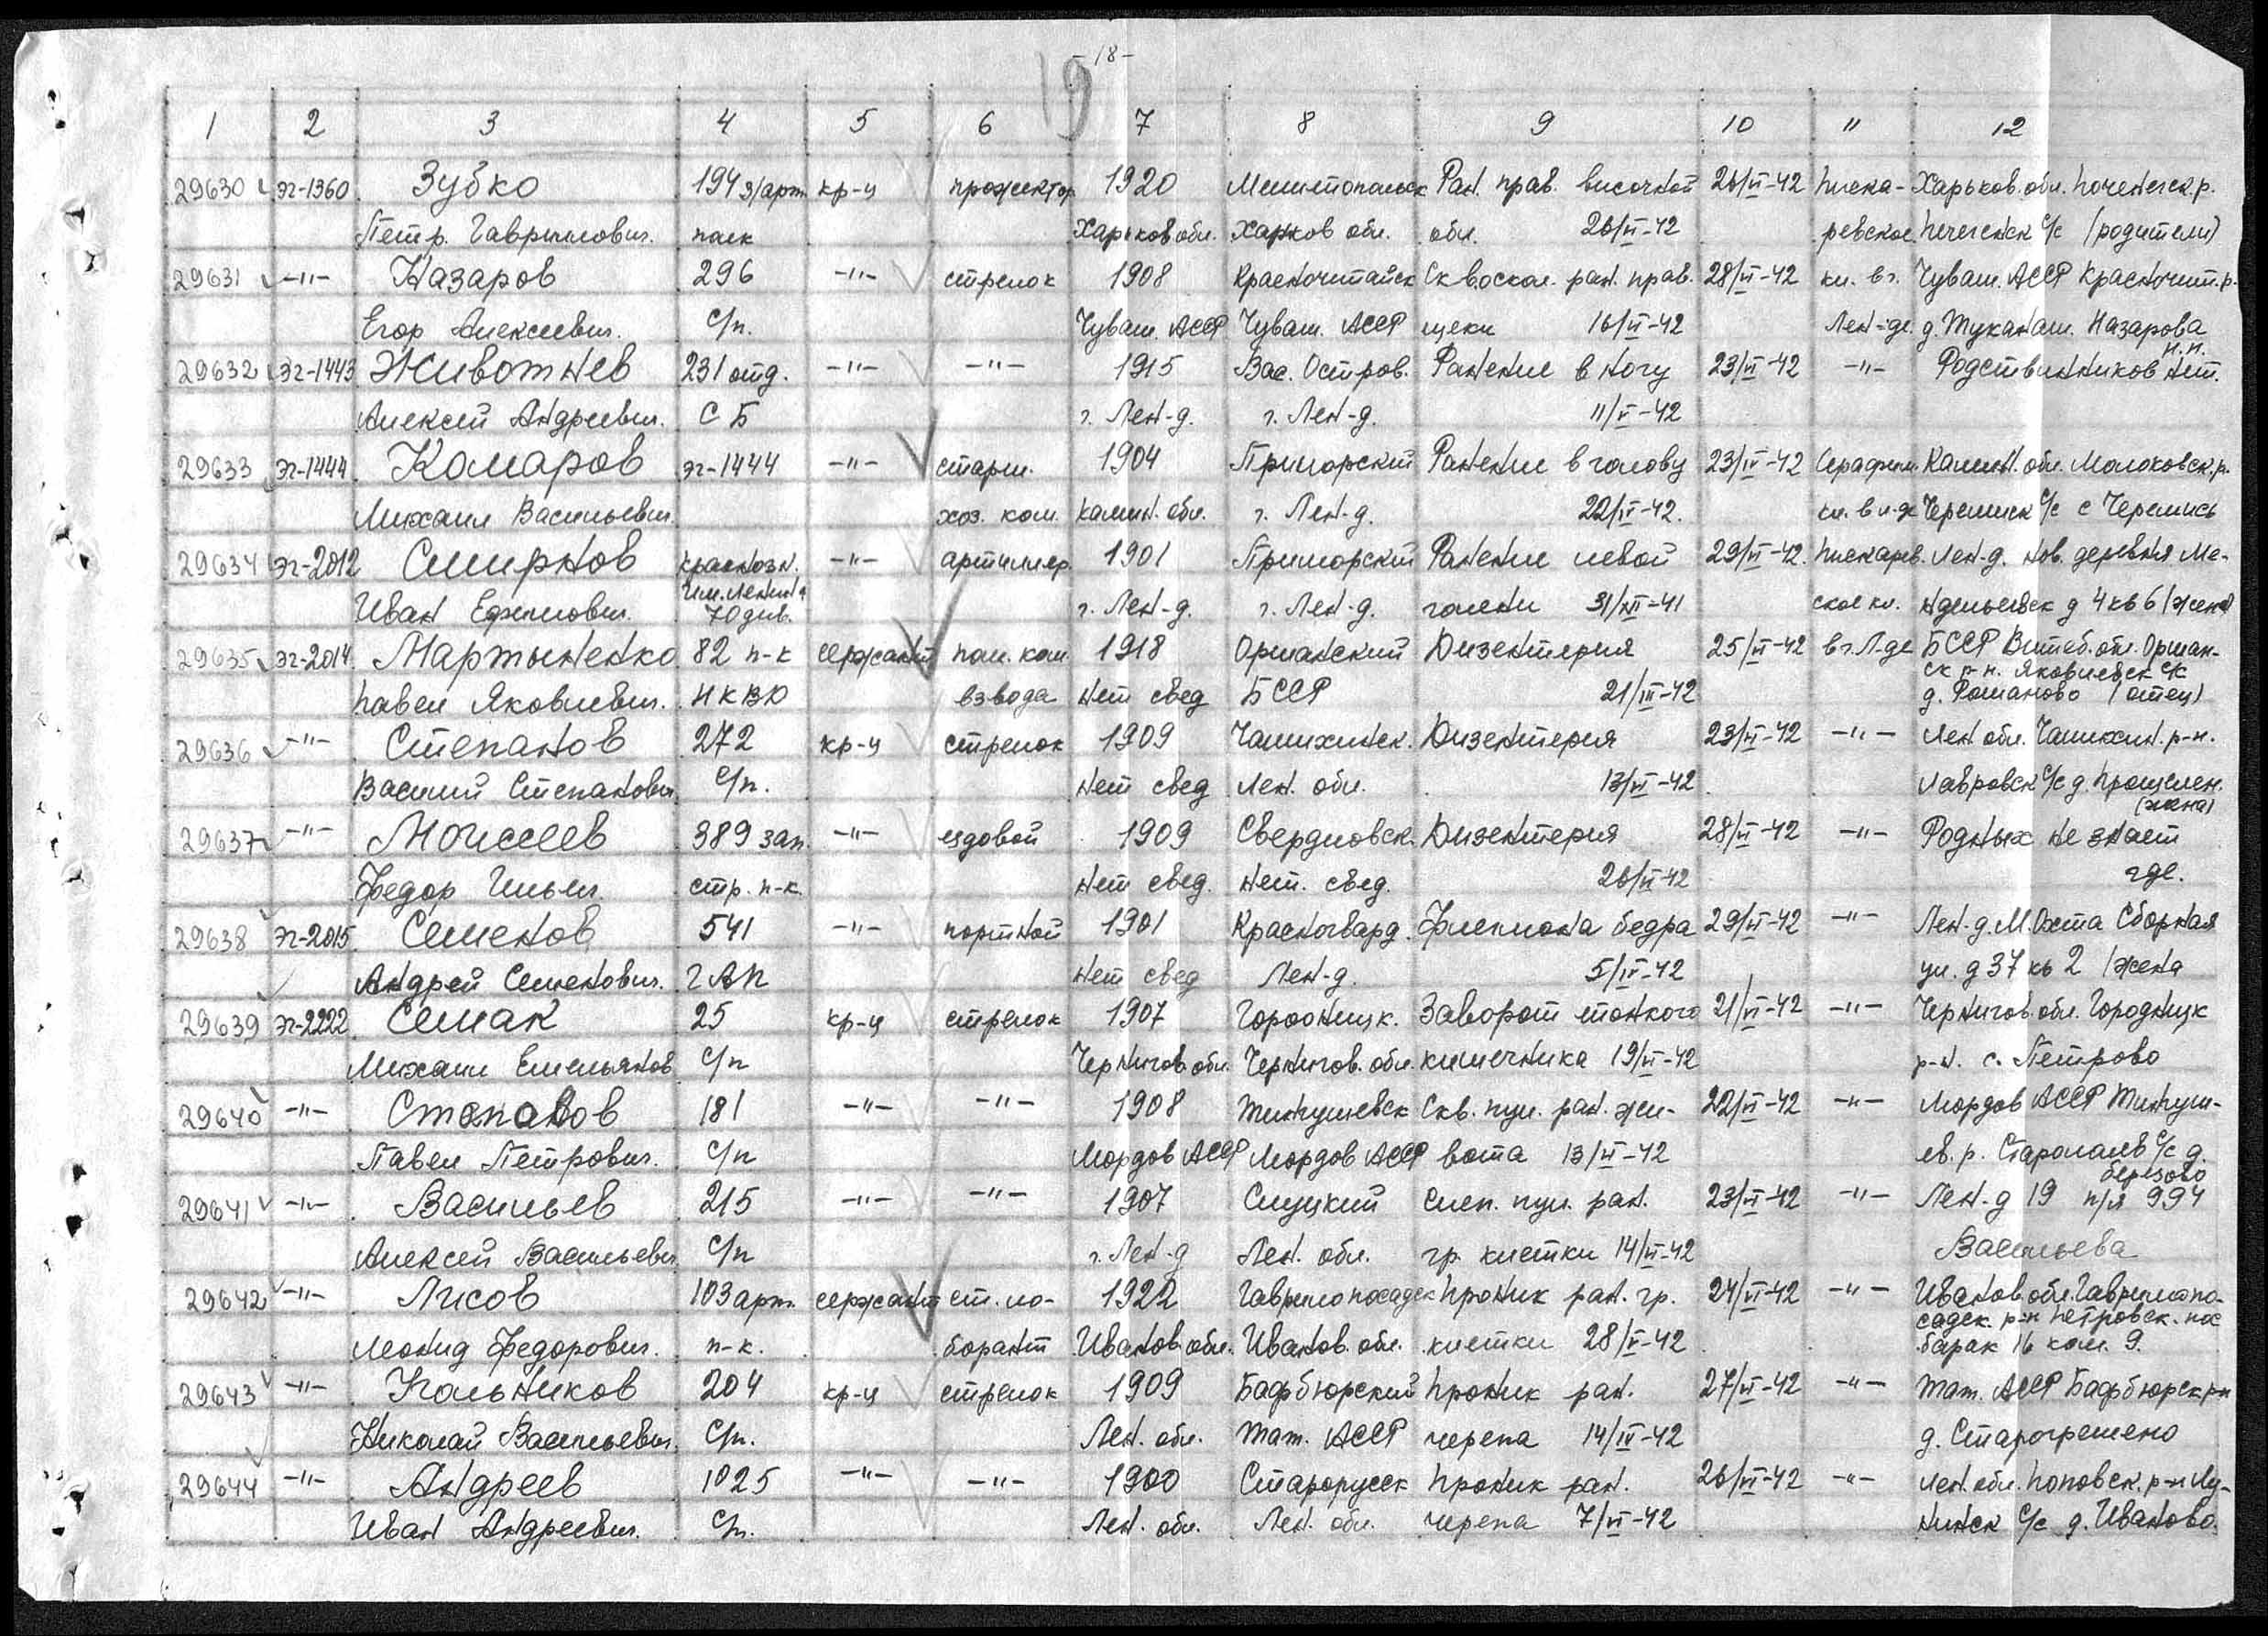 -18-
19
1 2 3 4 5 6 7 8 9 10 11 12
29630 эг-1360 Зубко 194 з/арт. кр-ц прожектор 1920 Ран. прав. височной 26/VI-42 Писка- Харьков. обл. Печенегск. р.
Петр. Гаврилович. полк Харьков обл. Харков обл. обл. 26/VI-42 ревское Печегенск с/с (родители)
29631 -"- Назаров 296 -"- стрелок 1908 Красночитайск Ск в.оскол. ран. прав. 28/VI-42 кл. в г. Чуваш. АССР Красночит. р.
Егор Алексеевич. с/п. Чуваш. АССР Чуваш. АССР щеки 16/VI-42 Лен-де. д. Туканаш. Назарова
н.п.
29632 эг-1443 Животнев 231 отд. -"- -"- 1915 Вас. Остров. Ранение в ногу 23/VI-42 -"- Родственников нет.
Алексей Андреевич. С Б г. Лен-д. г. Лен-д. 11/V-42
29633 эг-1444 Комаров эг-1444 -"- старш. 1904 Приморский Ранение в голову 23/IV-42 Серафим. Калин. обл. Молоковск. р.
Михаил Васильевич хоз. ком. Калин. обл. г. Лен-д. 22/IV-42. кл. в л-де Черемиск с/с с Черемись
29634 эг-2012 Смирнов Краснозн. -"- артиллер. 1901 Приморский Ранение левой 29/VI-42. Пискарев. Лен-д. нов. деревня Ме-
им. Ленина
Иван Ефимович. 70 див. г. Лен-д. г. Лен-д. голени 31/XII-41 ское кл. нделеевск д 4 кв 6 (жена)
29635 эг-2014 Мартыненко 82 п-к сержант пом. ком. 1918 Оршанский Дизентерия 25/VI-42 в г. Л-де БССР Витеб. обл. Оршан-
ск р-н. Яковлевск с/с
Павел Яковлевич. НКВД взвода Нет свед БССР 21/III-42 д. Романово (отец)
29636 -"- Степанов 272 кр-ц стрелок 1909 Чашхинск. Дизентерия 23/VI-42 -"- Лен обл. Чашкин. р-н.
Василий Степанович с/п. Нет свед Лен. обл. 13/VI-42 Лавровск с/с д.
(жена)
29637 -"- Моисеев 389 зап. -"- ездовой 1909 Свердловск. Дизентерия 28/VI-42 -"- Родных не знает
Федор Ильич. стр. п-к. Нет свед. Нет. свед. 26/VI-42 где.
29638 эг-2015 Семенов 541 -"- портной 1901 Красногвард. Флегмона бедра 29/VI-42 -"- Лен-д. М. Охта Сборная
Андрей Семенович. ГАП Нет свед Лен-д. 5/IV-42 ул. д 37 кв 2 (жена
29639 эг-2222 Семак 25 кр-ц стрелок 1907 Городницк. Заворот тонкого 21/VI-42 -"- Чернигов. обл. Городницк
Михаил Емельянов с/п Чернигов. обл. Чернигов. обл. кишечника 19/VI-42 р-н. с. Петрово
29640 -"- Степанов 181 -"- -"- 1908 Тингушевск Скв. пул. ран. жи- 22/VI-42 -"- Мордов АССР Тингуш-
Павел Петрович. с/п Мордов АССР Мордов АССР вота 13/VI-42 ев. р. с/с д.
березово
29641 -"- Васильев 215 -"- -"- 1907 Слуцкий Слеп. пул. ран. 23/VI-42 -"- Лен-д 19 п/я 994
Алексей Васильевич с/п г. Лен-д Лен. обл. гр. клетки 14/VI-42 Васильева
29642 -"- Лисов 103 арт. сержант ст. ло- 1922 Гаврилопосадск Проник ран. гр. 24/VI-42 -"- Иванов. обл. Гаврилопо-
садск. р-н Петровск. пос
Леонид Федорович. п-к. борант Иванов. обл. Иванов. обл. клетки 28/V-42 барак 16 ком. 9.
29643 -"- Угольников 204 кр-ц стрелок 1909 Бафбюрский Проник ран. 27/VI-42 -"- Тат. АССР Бафбюрск р-н
Николай Васильевич. с/п. Лен. обл. Тат. АССР черепа 14/IV-42 д. Старогрешено
29644 -"- Андреев 1025 -"- -"- 1900 Старорусск Проник ран. 26/VI-42 -"- Лен. обл. Поповск. р-н Лу-
Иван Андреевич. с/п. Лен. обл. Лен. обл. черепа 7/VI-42 нинск с/с д. Иваново.